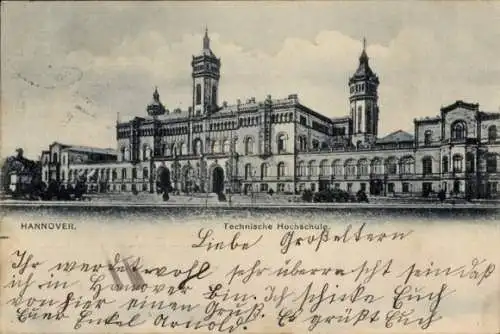 HANNOVER.
Technische Hochschule.
Liebe Großeltern
Ihr werdet wohl sehr überrascht sein daß
ich in Hannover bin. Ich schicke Euch
von hier einen Gruß. Es grüßt Euch
Euer Enkel Arnold.